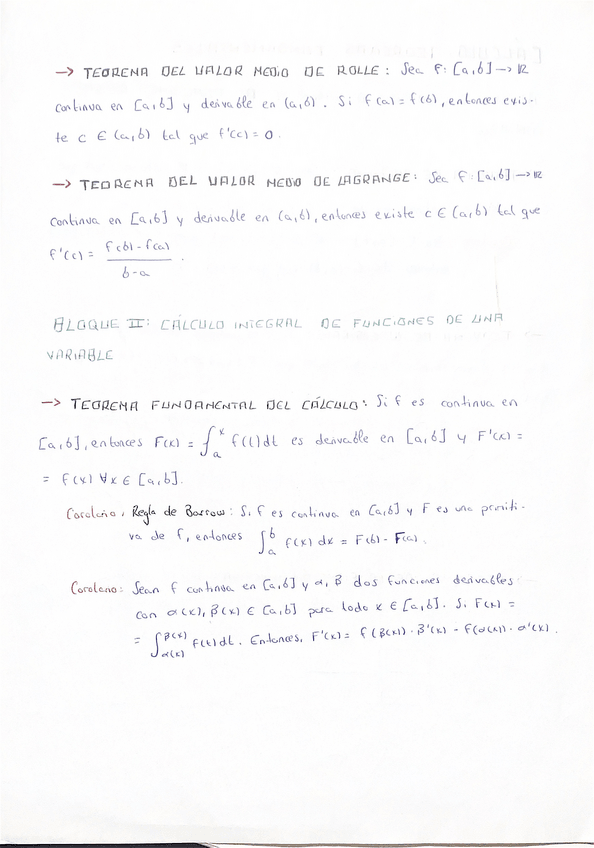 → TEOREMA DEL VALOR MEDIO DE ROLLE: Sea f: [a,b] → ℝ
continua en [a,b] y derivable en (a,b). Si f(a) = f(b), entonces exis-
te c ∈ (a,b) tal que f'(c) = 0.
→ TEOREMA DEL VALOR MEDIO DE LAGRANGE: Sea f: [a,b] → ℝ
continua en [a,b] y derivable en (a,b), entonces existe c ∈ (a,b) tal que
f'(c) = (f(b) - f(a)) / (b-a).
BLOQUE II: CÁLCULO INTEGRAL DE FUNCIONES DE UNA
VARIABLE
→ TEOREMA FUNDAMENTAL DEL CÁLCULO: Si f es continua en
[a,b], entonces F(x) = ∫_a^x f(t)dt es derivable en [a,b] y F'(x) =
= f(x) ∀x ∈ [a,b].
Corolario, Regla de Barrow: Si f es continua en [a,b] y F es una primiti-
va de f, entonces ∫_a^b f(x) dx = F(b) - F(a).
Corolario: Sean f continua en [a,b] y α, β dos funciones derivables
con α(x), β(x) ∈ [a,b] para todo x ∈ [a,b]. Si F(x) =
= ∫_{α(x)}^{β(x)} f(t)dt. Entonces, F'(x) = f(β(x)) · β'(x) - f(α(x)) · α'(x).